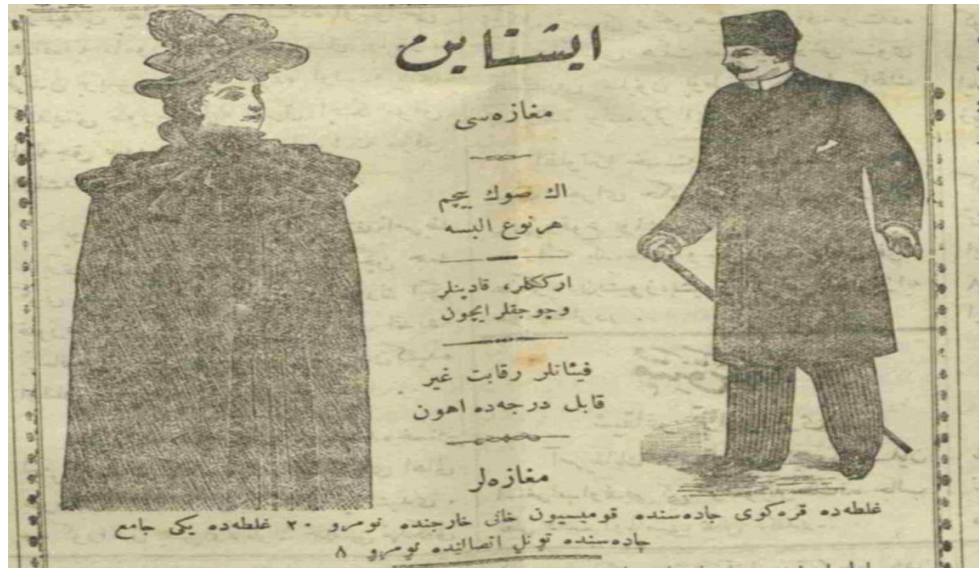 ایشتاین
مغازه‌سی
اك صوك بیچم
هر نوع البسه
ارککلر، قادینلر
وچوجقلر ایچون
فیئاتلر رقابت غیر
قابل درجه‌ده اهون
مغازه‌لر
غلطه‌ده قره‌كوی جاده‌سنده قومیسیون خانی خارجنده نومرو ٢٠ غلطه‌ده یكی جامع
جاده‌سنده تونل اتصالنده نومرو ٨